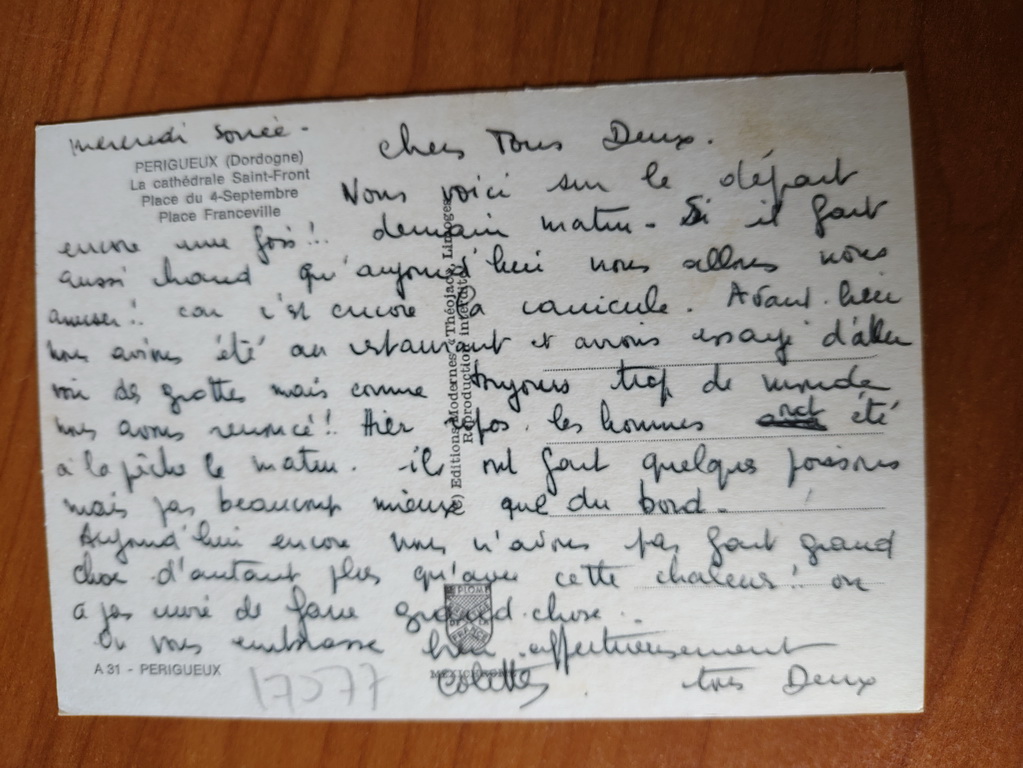 mercredi soirée -
PERIGUEUX (Dordogne)
La cathédrale Saint-Front
Place du 4-Septembre
Place Franceville
chers Tous Deux.
Nous voici sur le départ
encore une fois!! demain matin - Si il fait
aussi chaud qu'aujourd'hui nous allons nous
amuser!! car c'est encore la canicule. Avant-hier
nous avions été au restaurant et avions essayé d'aller
voir des grottes mais comme toujours trop de monde
nous avons renoncé!! Hier repos. les hommes ont été
à la pêche le matin. ils ont fait quelques poissons
mais pas beaucoup mieux que du bord.
Aujourd'hui encore nous n'avons pas fait grand
chose d'autant plus qu'avec cette chaleur!! on
a pas envie de faire grand-chose.
On vous embrasse bien affectueusement
Colette
tous Deux
A 31 - PERIGUEUX
17577
(c) Editions Modernes «Théojac», Limoges
Reproduction interdite
MEXICHROME